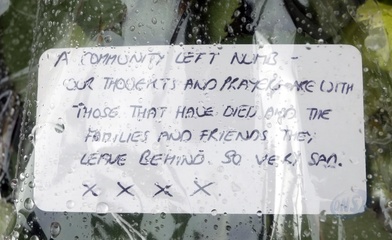 A COMMUNITY LEFT NUMB -
OUR THOUGHTS AND PRAYERS ARE WITH
THOSE THAT HAVE DIED AND THE
FAMILIES AND FRIENDS THEY
LEAVE BEHIND. SO VERY SAD.
X X X X